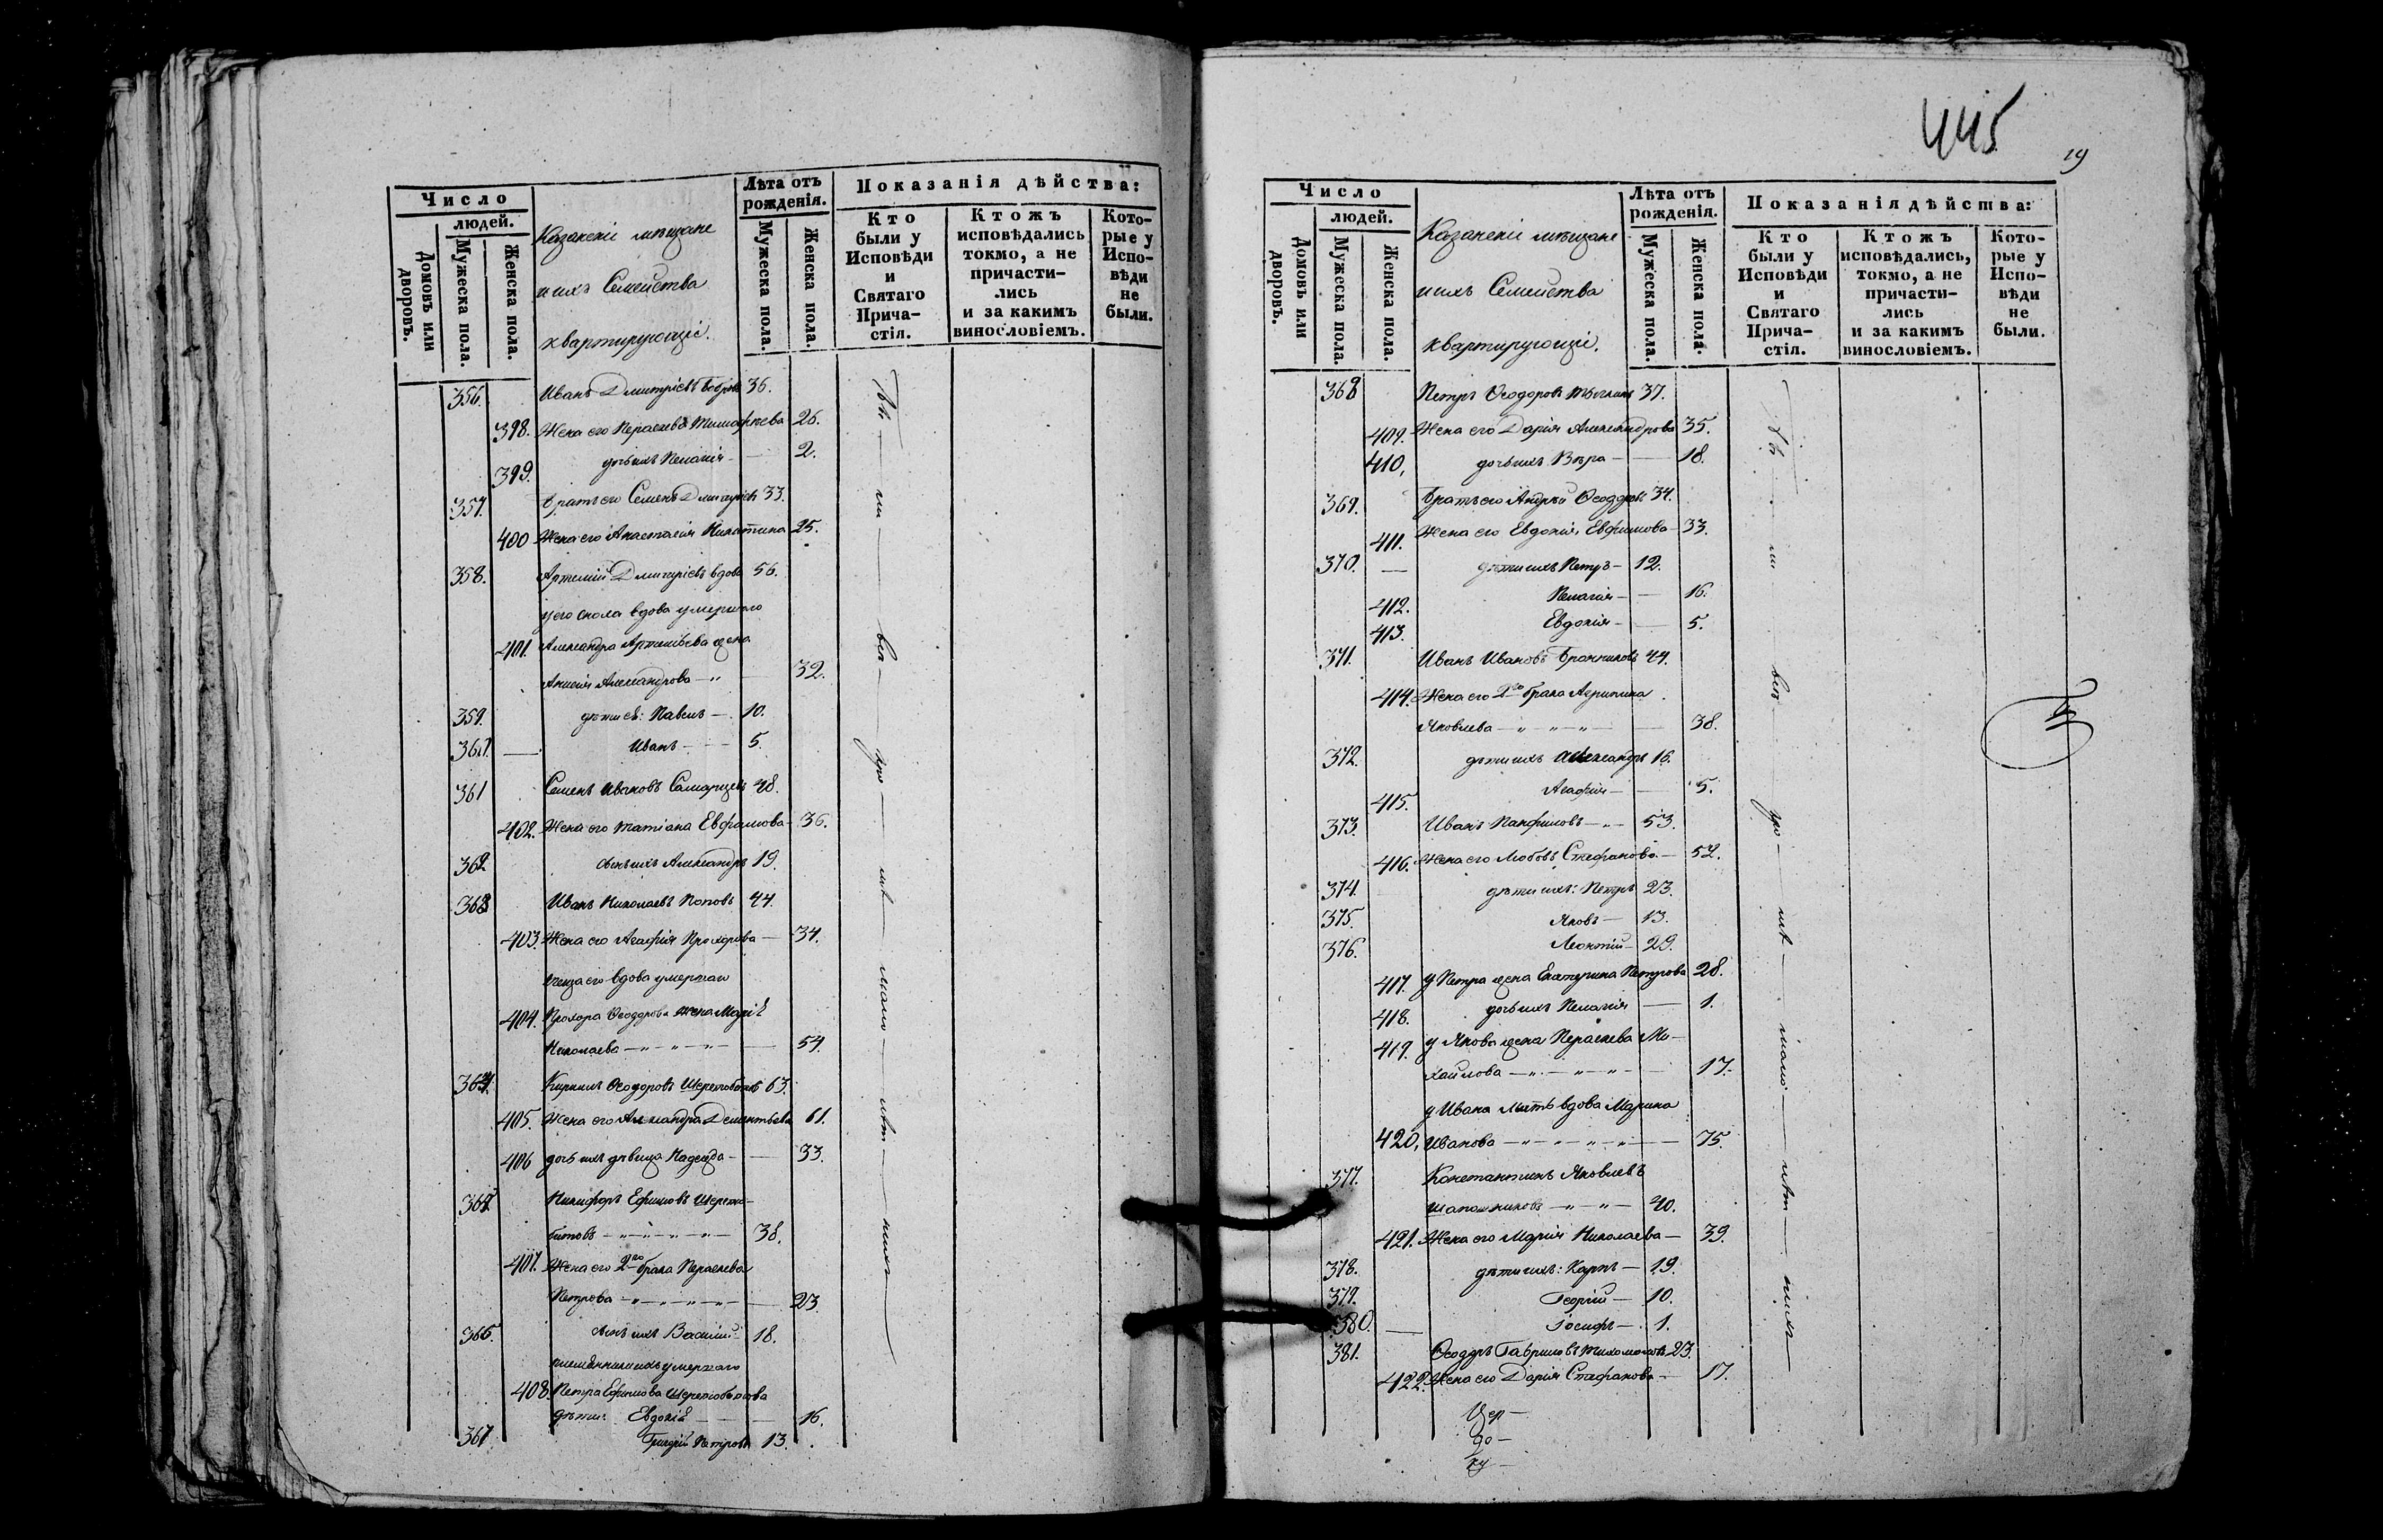 Число
людей.
Домовъ или дворовъ.
Мужеска пола.
Женска пола.
Казанскіе мѣщане
и ихъ Семейства
квартирующіе.
Лѣта отъ
рожденія.
Мужеска пола.
Женска пола.
Показанія дѣйства:
Кто
были у
Исповѣди
и
Святаго
Прича-
стія.
Ктожъ
исповѣдались
токмо, а не
причасти-
лись
и за какимъ
винословіемъ.
Кото-
рые у
Испо-
вѣди
не
были.
356. Иванъ Дмитріевъ 36.
398. Жена его Параскева Тимофѣева 26.
399. дочь ихъ Пелагія — 2.
357. Братъ его Семенъ Дмитріевъ 33.
400 Жена его Анастасія Никитина 25.
358. Артемій Дмитріевъ вдовъ 56.
у его сноха вдова умершаго
401. Александра Артемьева жена
Александрова — 32.
359. дѣти ея: Павелъ — 10.
360. Иванъ — 5.
361 Семенъ Ивановъ 48.
402. Жена его Татіана Евфимова — 36.
362 сынъ ихъ Александръ 19.
363 Иванъ Николаевъ Поповъ 44.
403. Жена его Агафія Прохорова — 34.
теща его вдова умершаго
404. Прохора Ѳеодорова жена Марія
Николаева — 54.
364. Кирилъ Ѳеодоровъ 63.
405. Жена его Александра Дементьева 61.
406 дочь ихъ дѣвица Надежда — 33.
365. Никифоръ Ефимовъ
38.
407. Жена его 2го брака Параскева
Петрова — 23.
366. сынъ ихъ Василій 18.
умершаго
408. Петра Ефимова
дѣти: Евдокія — 16.
367 Григорій Петровъ 13.
всѣ
445
19
Число
людей.
Домовъ или дворовъ.
Мужеска пола.
Женска пола.
Казанскіе мѣщане
и ихъ Семейства
квартирующіе.
Лѣта отъ
рожденія.
Мужеска пола.
Женска пола.
Показанія дѣйства:
Кто
были у
Исповѣди
и
Святаго
Прича-
стія.
Ктожъ
исповѣдались,
токмо, а не
причасти-
лись
и за какимъ
винословіемъ.
Кото-
рые у
Испо-
вѣди
не
были.
368 Петръ Ѳеодоровъ 37.
409. Жена его Дарія Александрова 35.
410, дочь ихъ Вѣра — 18.
369. Братъ его Андрей Ѳеодоровъ 34.
411. Жена его Евдокія Евфимова 33.
370. дѣти ихъ Петръ — 12.
412. Пелагія — 16.
413. Евдокія — 5.
371. Иванъ Ивановъ 44.
414. Жена его 2го брака Агрипина
Яковлева — 38.
372. дѣти ихъ Александръ 16.
415. Агафія — 5.
373. Иванъ Панфиловъ — 53.
416. Жена его Любовь Стефанова — 52.
374. дѣти ихъ: Петръ 23.
375. Яковъ — 13.
376. Леонтій — 29.
417. у Петра жена Екатерина Петрова 28.
418. дочь ихъ Пелагія — 1.
419. у Якова жена Параскева Ми-
хайлова — 17.
у Ивана мать вдова Марина
420, Иванова — 75.
377. Константинъ Яковлевъ
Шапошниковъ — 40.
421. Жена его Марія Николаева — 39.
378. дѣти ихъ: Карпъ — 19.
379. Георгій — 10.
380. Іосифъ — 1.
381. Ѳеодоръ Гавриловъ 23.
422. Жена его Дарія Стефанова — 17.
всѣ